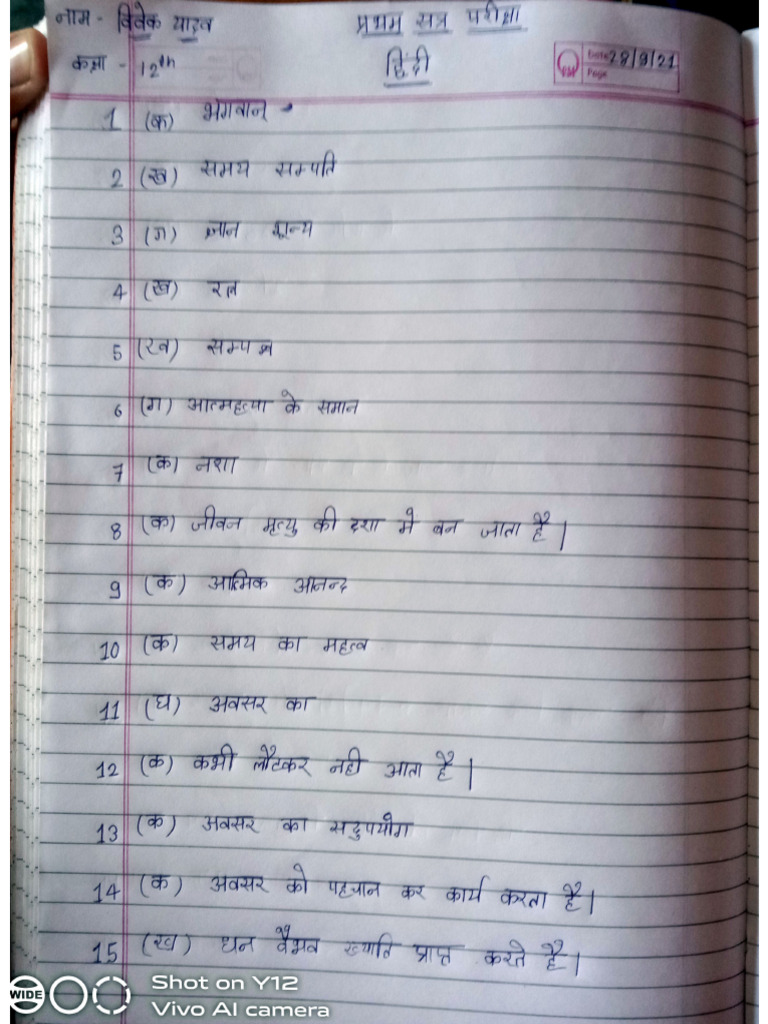 नाम - विवेक यादव प्रथम सत्र परीक्षा
कक्षा - 12th हिंदी Date 28/9/21
Page
1 (क) भगवान
2 (ख) समय सम्पति
3 (ग) ज्ञान शून्य
4 (ख) रत्न
5 (ख) सम्पन्न
6 (ग) आत्महत्या के समान
7 (क) नशा
8 (क) जीवन मृत्यु की दशा मे बन जाता है।
9 (क) आत्मिक आनन्द
10 (क) समय का महत्व
11 (घ) अवसर का
12 (क) कभी लौटकर नही आता है।
13 (क) अवसर का सदुपयोग
14 (क) अवसर को पहचान कर कार्य करता है।
15 (ख) धन वैभव ख्याति प्राप्त करते है।
WIDE
Shot on Y12
Vivo AI camera